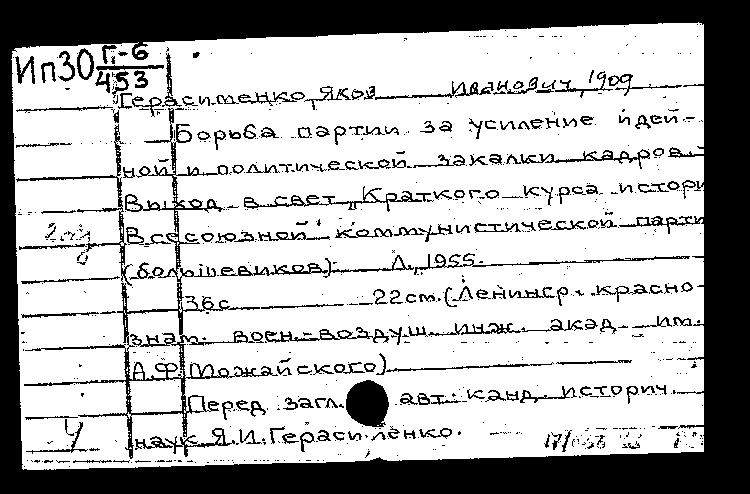 Ип30 Г-6
453
Герасименко, Яков Иванович, 1909
Борьба партии за усиление идей-
ной и политической закалки кадров.
Выход в свет „Краткого курса истори
Всесоюзной коммунистической парти
(большевиков). Л., 1955.
36с 22см. (Ленингр. красно-
знам. воен.-воздуш. инж. акад. им.
А.Ф. Можайского)
Перед загл. авт. канд. историч.
наук Я.И. Герасименко.
Ч